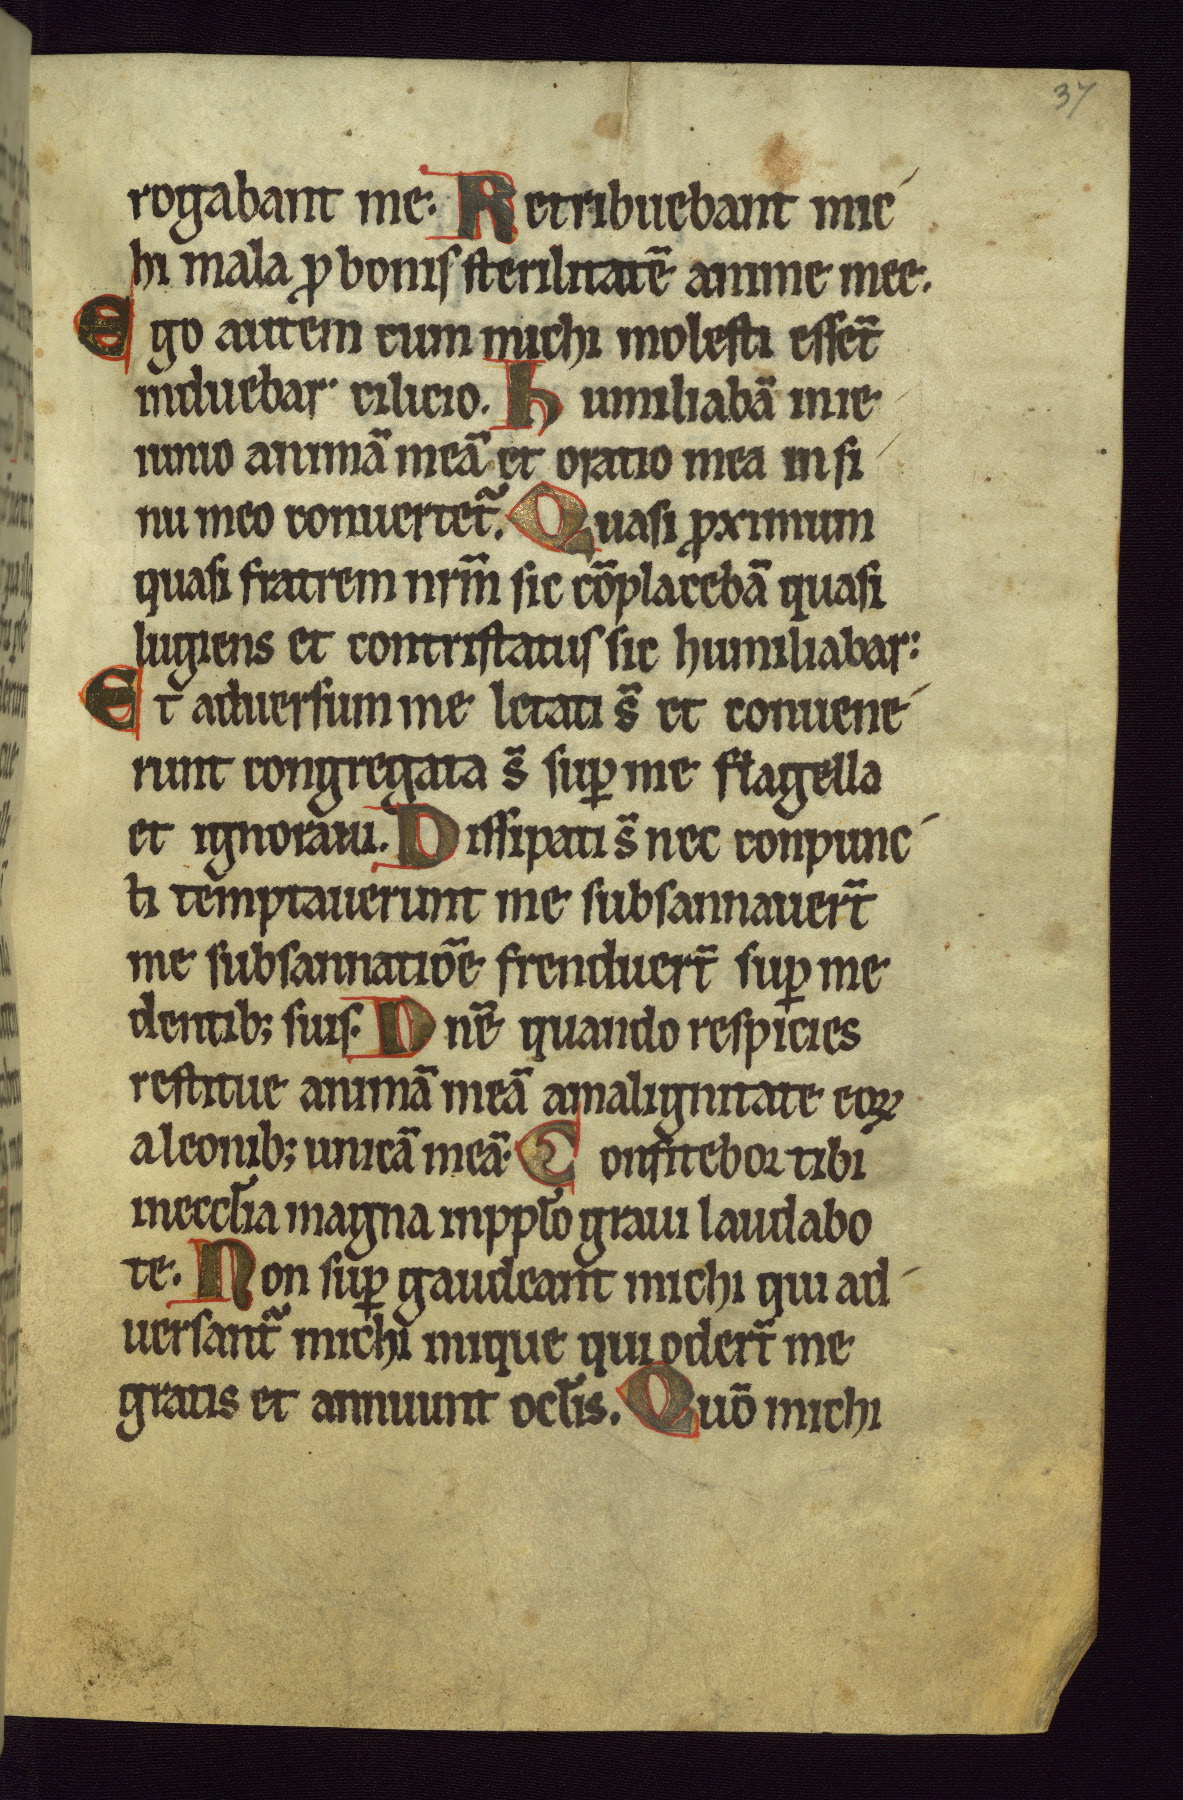 37
rogabant me. Retribuebant mic
hi mala ꝓ bonis sterilitatē anime mee.
Ego autem cum michi molesti essēt
induebar cilicio. Humiliabā in ie
iunio animā meā et oratio mea in si
nu meo conuertet᷑. Quasi ꝓximum
quasi fratrem nrm̄ sic cōplacebā quasi
lugens et contristatus sic humiliabar:
Et aduersum me letati s̄ et conuene
runt congregata s̄ suꝑ me flagella
et ignoraui. Dissipati s̄ nec conpunc
ti temptauerunt me subsannauert̄
me subsannatiōe frenduert̄ suꝑ me
dentib; suis. Dnē quando respicies
restitue animā meā a malignitate eoꝝ
a leonib; unicā meā. Confitebor tibi
in eccl̄ia magna in ppl̄o graui laudabo
te. Non suꝑ gaudeant michi qui ad
uersant᷑ michi inique qui odert̄ me
gratis et annuunt ocl̄is. Quō michi